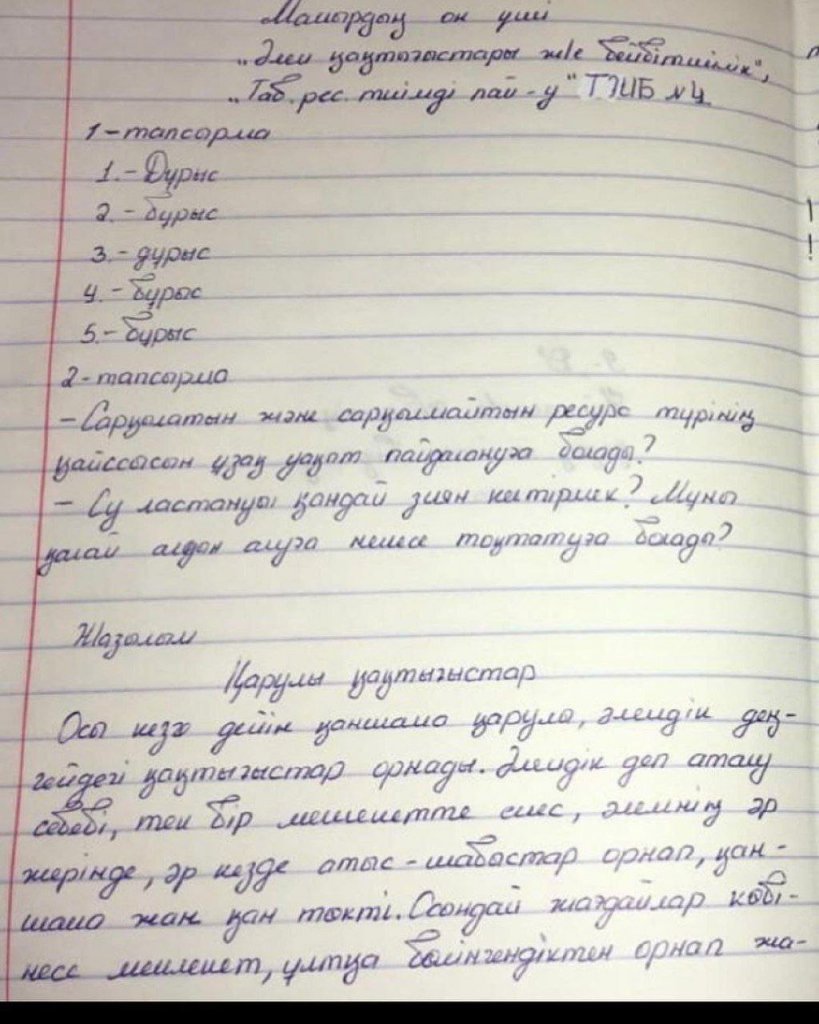 Мамырдың он үші
„Әлем қақтығыстары ж/е бейбітшілік",
„Таб. рес. тиімді пай-у" ТЖБ №4
1-тапсырма
1.- Дұрыс
2.- бұрыс
3.- дұрыс
4.- бұрыс
5.- бұрыс
2-тапсырма
- Сарқылатын және сарқылмайтын ресурс түрінің
қайссысын ұзақ уақыт пайдалануға болады?
- Су ластануы қандай зиян келтірмек? Мұны
қалай алдын алуға немесе тоқтатуға болады?
Жазылым
Қарулы қақтығыстар
Осы кезге дейін қаншама қарулы, әлемдік дең-
гейдегі қақтығыстар орнады. Әлемдік деп атау
себебі, тек бір мемлекетте емес, әлемнің әр
жерінде, әр кезде атыс-шабыстар орнап, қан-
шама жан қан төкті. Осындай жағдайлар көбі-
несе мемлекет, ұлтқа бөлінгендіктен орнап жа-